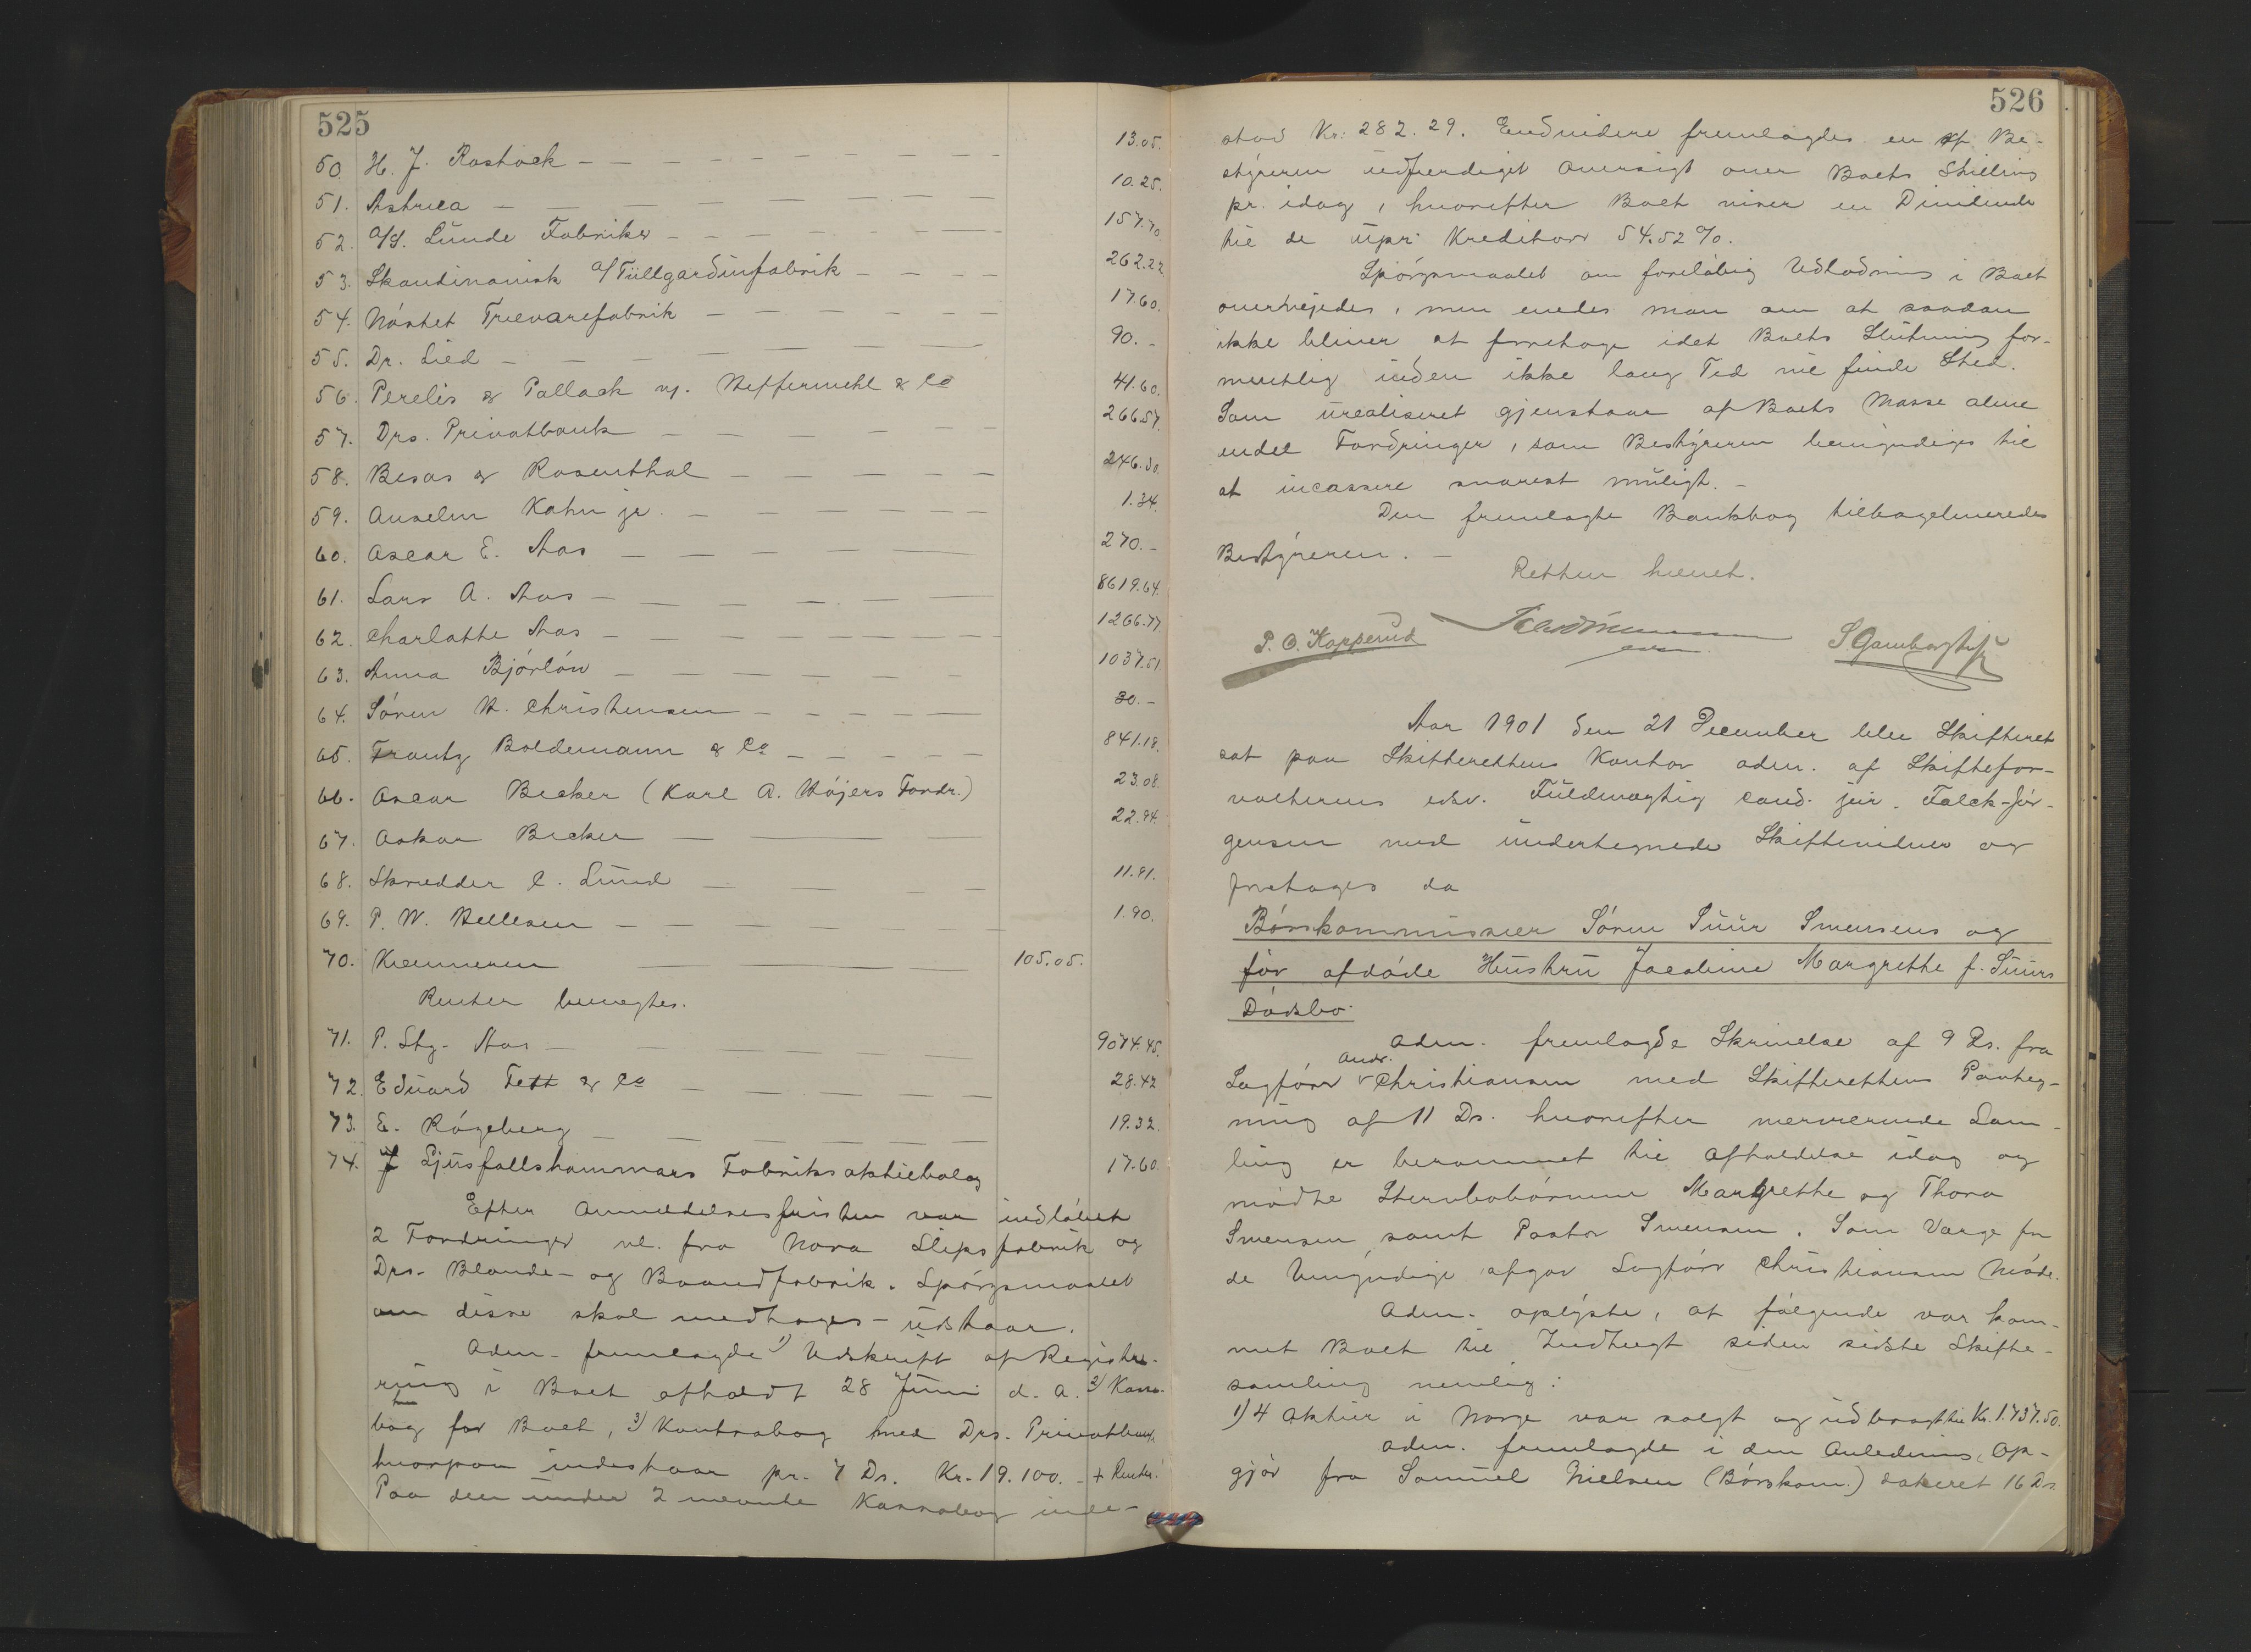 525
50. H. J. Rostock — 13.05.
51. Astrea — 10.25.
52. A/S. Lunde Fabriker — 157.70
53. Skandinavisk A/ Tüllgardinfabrik — 262.22.
54. Nöstet Trævarefabrik — 17.60.
55. Dr. Lied — 90.-
56. Perelis & Pollack v/. Heffermehl & Co 41.60.
57. Drs. Privatbank — 266.57.
58. Besas & Rosenthal — 246.50.
59. Anselm Kahn jr. — 1.34.
60. Oscar E. Aas — 270.-
61. Lars A. Aas — 8619.64.
62. Charlotte Aas — 1266.77
63. Anna Bjórlóv — 1037.51
64. Sóren H. Christensen — 30.-
65. Frantz Boldemann & Co — 841.18.
66. Oscar Becker (Karl A. Höjers Fordr.) 23.08.
67. Oskar Becker — 22.94.
68. Skrædder C. Lund — 11.81.
69. P. W. Hellesen — 1.90.
70. Kæmneren — 105.05.
Renter benegtes.
71. P. Stg. Aas — 9074.45.
72. Eduard Fett & Co — 28.42
73. E. Rógeberg — 19.32.
74. Ljusfallshammars Fabriksaktiebolag 17.60.
Efter Anmeldelsesfristen var indlóbet
2 Fordringer nl. fra Nora Slipsfabrik og
Drs. Blonde- og Baandfabrik. Spórgsmaalet
om disse skal medtages - udstaar.
Adm. fremlagde 1) Udskrift af Registre-
ring i Boet afholdt 28 Juni d. A. 2) Kasse-
bog for Boet, 3) Kontrabog med Drs. Privatbank
hvorpaa indestaar pr. 7 Ds. Kr. 19.100.- + Renter.
Paa den under 2 nævnte Kassabog inde-
526
stod Kr: 282.29. Endvidere fremlagdes en af Be-
styreren udfærdiget Oversigt over Boets Stilling
pr. idag, hvorefter Boet viser en Dividende
til de upr. Kreditorer 54.52 %.
Spórgsmaalet om foreløbig Udlodning i Boet
overveiedes, men enedes man om at saadan
ikke bliver at foretage idet Boets Slutning for-
mentlig inden ikke lang Tid vil finde Sted.
Som urealiseret gjenstaar af Boets Masse alene
endel Fordringer, som Bestyreren bemyndiges til
at incassere snarest muligt.-
Den fremlagte Bankbog tilbageleveredes
Bestyreren.-
Retten hævet.
P. O. Kopperud
Aar 1901 den 21 December blev Skifteret
sat paa Skifterettens Kontor adm. af Skiftefor-
valterens edsv. Fuldmægtig Cand. jur. Falck-Jór-
gensen med undertegnede Skiftevidner og
foretages da
Bórskommissær Sóren Suur Svensens og
fór afdóde Hustru Jacobine Margrethe f. Suurs
Dódsbo.
Adm. fremlagde Skrivelse af 9 Ds. fra
Sagfórer Andr. Christiansen med Skifterettens Paateg-
ning af 11 Ds. hvorefter nærværende Sam-
ling er berammet til Afholdelse idag og
mødte Stervbobórnene Margrethe og Thora
Svensen, samt Pastor Svensen. Som Værge for
de Umyndige afgav Sagfórer Christiansen Móde.
Adm. oplyste, at fólgende var kom-
met Boet til Indtægt siden sidste Skifte-
samling nemlig:
1) 4 Aktier i Norge var solgt og udbragt til Kr. 1.737.50.
Adm. fremlagde i den Anledning, Op-
gjór fra Samuel Nielsen (Bórskom.) dateret 16 Ds.